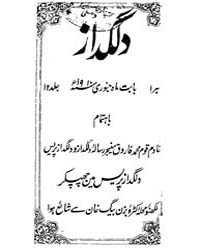 دلگداز
نمبر ۱ بابت ماہ جنوری سنہ ۱۹۱۰ء جلد ۱۲
باہتمام
خادم قوم محمد فاروق منیجر رسالہ دلگداز و دلگداز پریس
دلگداز پریس مین چھپکر
لکھنؤ کٹرہ بزن بیگ خان سے شائع ہوا